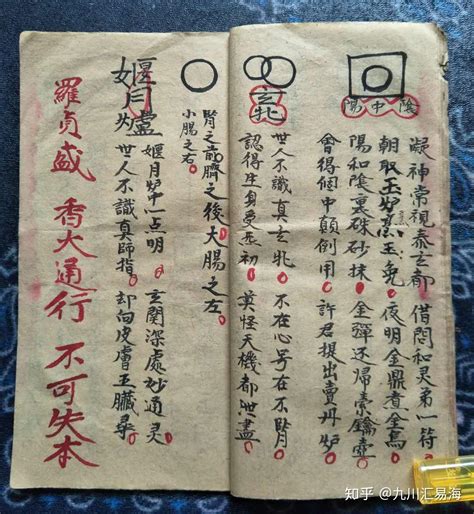 陰中陽
凝神常視泰玄都 借問和灵弟一符
朝取玉炉烹玉兔 夜明金鼎煮金烏
陽和陰裏硃砂抹 金彈还歸索鑰壺
會得個中顛倒用 許君提出賣丹炉
玄牝
世人不識真玄牝 不在心兮在不腎
認得生身受炁初 莫怪天機都泄盡
腎之前臍之後大腸之左
小腸之右
姬月炉中一点明 玄関深處妙通灵
世人不識真師指 却向皮膚五臟尋
羅貞盛 香火通行 不可失本
知乎 @九川汇易海